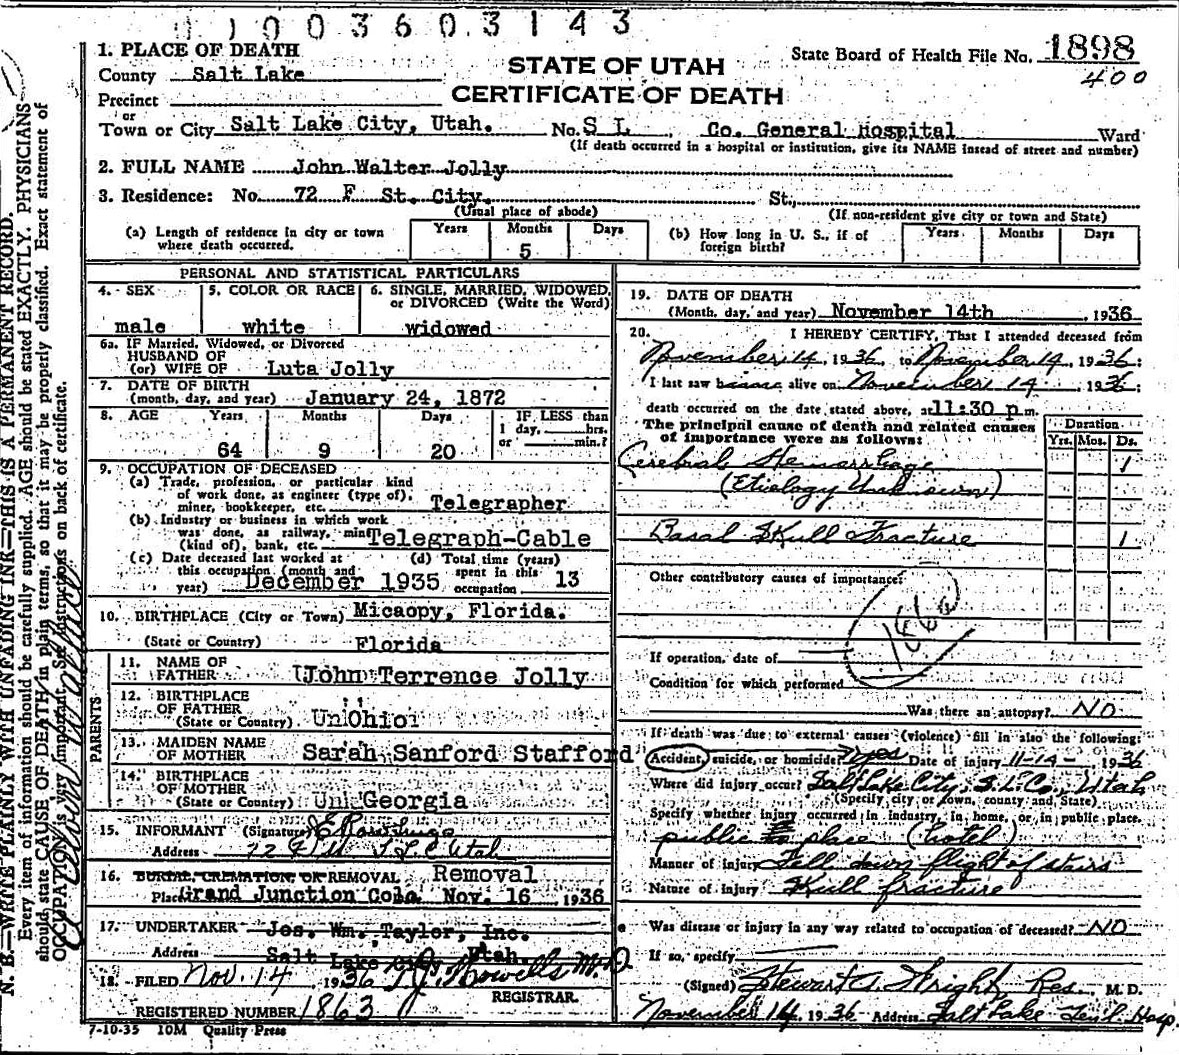 1003603143
1. PLACE OF DEATH
County Salt Lake
STATE OF UTAH
CERTIFICATE OF DEATH
State Board of Health File No. 1898
400
Precinct
or
Town or City Salt Lake City, Utah. No. S L Co. General Hospital Ward
(If death occurred in a hospital or institution, give its NAME instead of street and number)
2. FULL NAME John Walter Jolly
3. Residence: No. 72 F St. City. St.,
(Usual place of abode) (If non-resident give city or town and State)
(a) Length of residence in city or town where death occurred. Years Months 5 Days
(b) How long in U. S., if of foreign birth? Years Months Days
PERSONAL AND STATISTICAL PARTICULARS
4. SEX male
5. COLOR OR RACE white
6. SINGLE, MARRIED, WIDOWED, or DIVORCED (Write the Word) widowed
6a. IF Married, Widowed, or Divorced
HUSBAND OF
(or) WIFE OF Luta Jolly
7. DATE OF BIRTH
(month, day, and year) January 24, 1872
8. AGE Years 64 Months 9 Days 20 IF LESS than
1 day, hrs.
or min.?
9. OCCUPATION OF DECEASED
(a) Trade, profession, or particular kind
of work done, as engineer (type of),
miner, bookkeeper, etc. Telegrapher
(b) Industry or business in which work
was done, as railway, mine
(kind of), bank, etc. Telegraph-Cable
(c) Date deceased last worked at
this occupation (month and
year) December 1935
(d) Total time (years)
spent in this
occupation 13
10. BIRTHPLACE (City or Town) Micaopy, Florida.
(State or Country) Florida
PARENTS
11. NAME OF
FATHER John Terrence Jolly
12. BIRTHPLACE
OF FATHER
(State or Country) Un Ohio
13. MAIDEN NAME
OF MOTHER Sarah Sanford Stafford
14. BIRTHPLACE
OF MOTHER
(State or Country) Un Georgia
15. INFORMANT (Signature)
Address
16. BURIAL, CREMATION OR REMOVAL Removal
Place Grand Junction Colo. Nov. 16 1936
17. UNDERTAKER Jos. Wm. Taylor, Inc.
Address Salt Lake City Utah.
18. FILED Nov. 14 1936
REGISTRAR
REGISTERED NUMBER 1863
7-10-35 10M Quality Press
19. DATE OF DEATH
(Month, day, and year) November 14th 1936
20. I HEREBY CERTIFY, That I attended deceased from
November 14, 1936, to November 14, 1936;
I last saw him alive on November 14, 1936;
death occurred on the date stated above, at 11:30 p.m.
The principal cause of death and related causes
of importance were as follows:
Duration
Yrs. Mos. Ds.
Cerebral Hemorrhage 1
(Etiology Unknown)
Basal Skull Fracture 1
Other contributory causes of importance:
If operation, date of
Condition for which performed
Was there an autopsy? NO
If death was due to external causes (violence) fill in also the following:
Accident, suicide, or homicide? yes Date of injury 11-14- 1936
Where did injury occur? Salt Lake City, S. L. Co., Utah
(Specify city or town, county and State)
Specify whether injury occurred in industry, in home, or in public place.
public place (hotel)
Manner of injury Fell down flight of stairs
Nature of injury Skull fracture
Was disease or injury in any way related to occupation of deceased? NO
If so, specify
(Signed) Stewart A. Wright, Res., M. D.
November 14, 1936 Address Salt Lake Genl. Hosp.
N. B.—WRITE PLAINLY WITH UNFADING INK—THIS IS A PERMANENT RECORD.
Every item of information should be carefully supplied. AGE should be stated EXACTLY. PHYSICIANS
should state CAUSE OF DEATH in plain terms, so that it may be properly classified. Exact statement of
OCCUPATION is very important. See instructions on back of certificate.